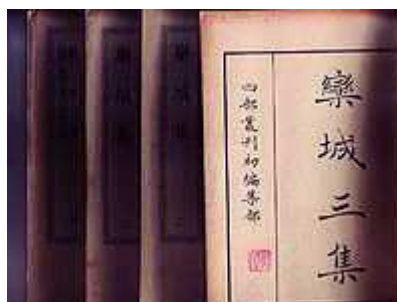 欒城三集
四部叢刊初編集部
欒城集
欒城集